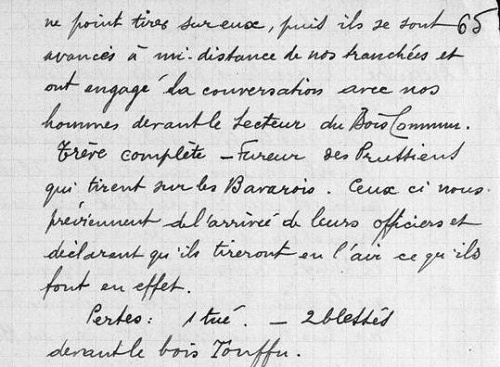 ne point tirer sur eux, puis ils se sont 65
avancés à mi-distance de nos tranchées et
ont engagé la conversation avec nos
hommes devant le Secteur du Bois Commun.
Trêve complète - Fureur des Prussiens
qui tirent sur les Bavarois. Ceux ci nous
préviennent de l'arrivée de leurs officiers et
déclarent qu'ils tireront en l'air ce qu'ils
font en effet.
Pertes: 1 tué. - 2 blessés
devant le bois Touffu.